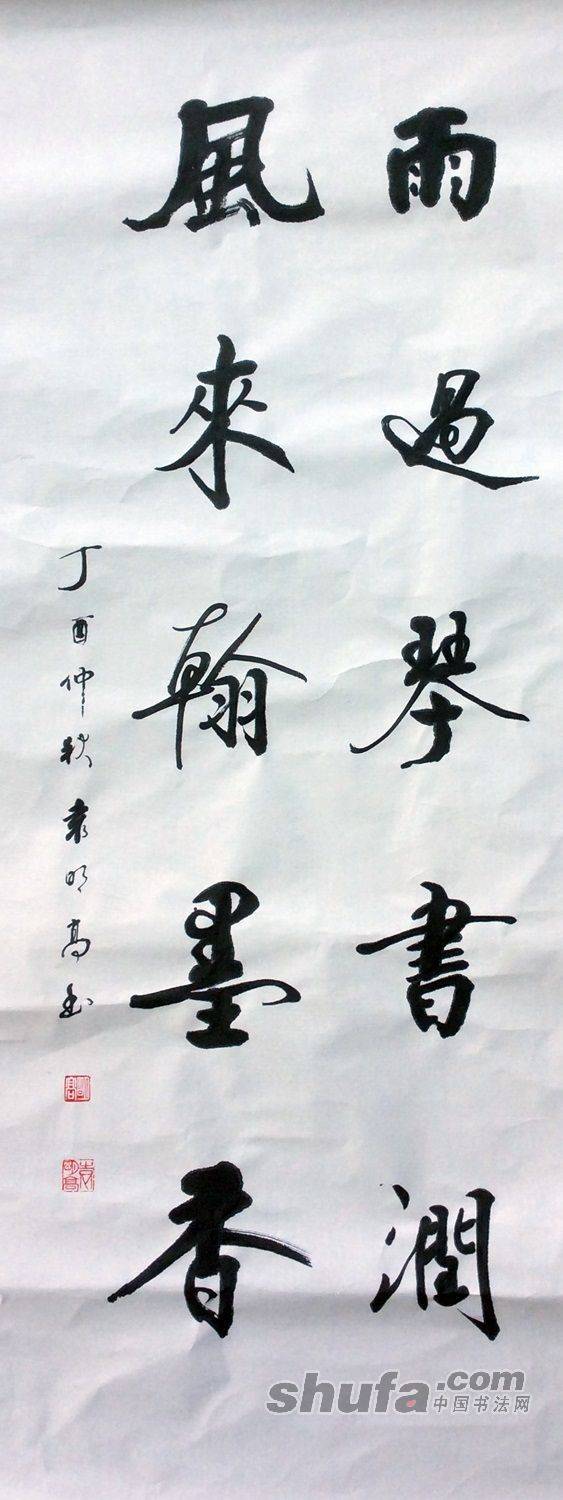 雨過琴書潤
風來翰墨香
丁酉仲秋袁明高書
明高
袁明高
shufa.com
中国书法网